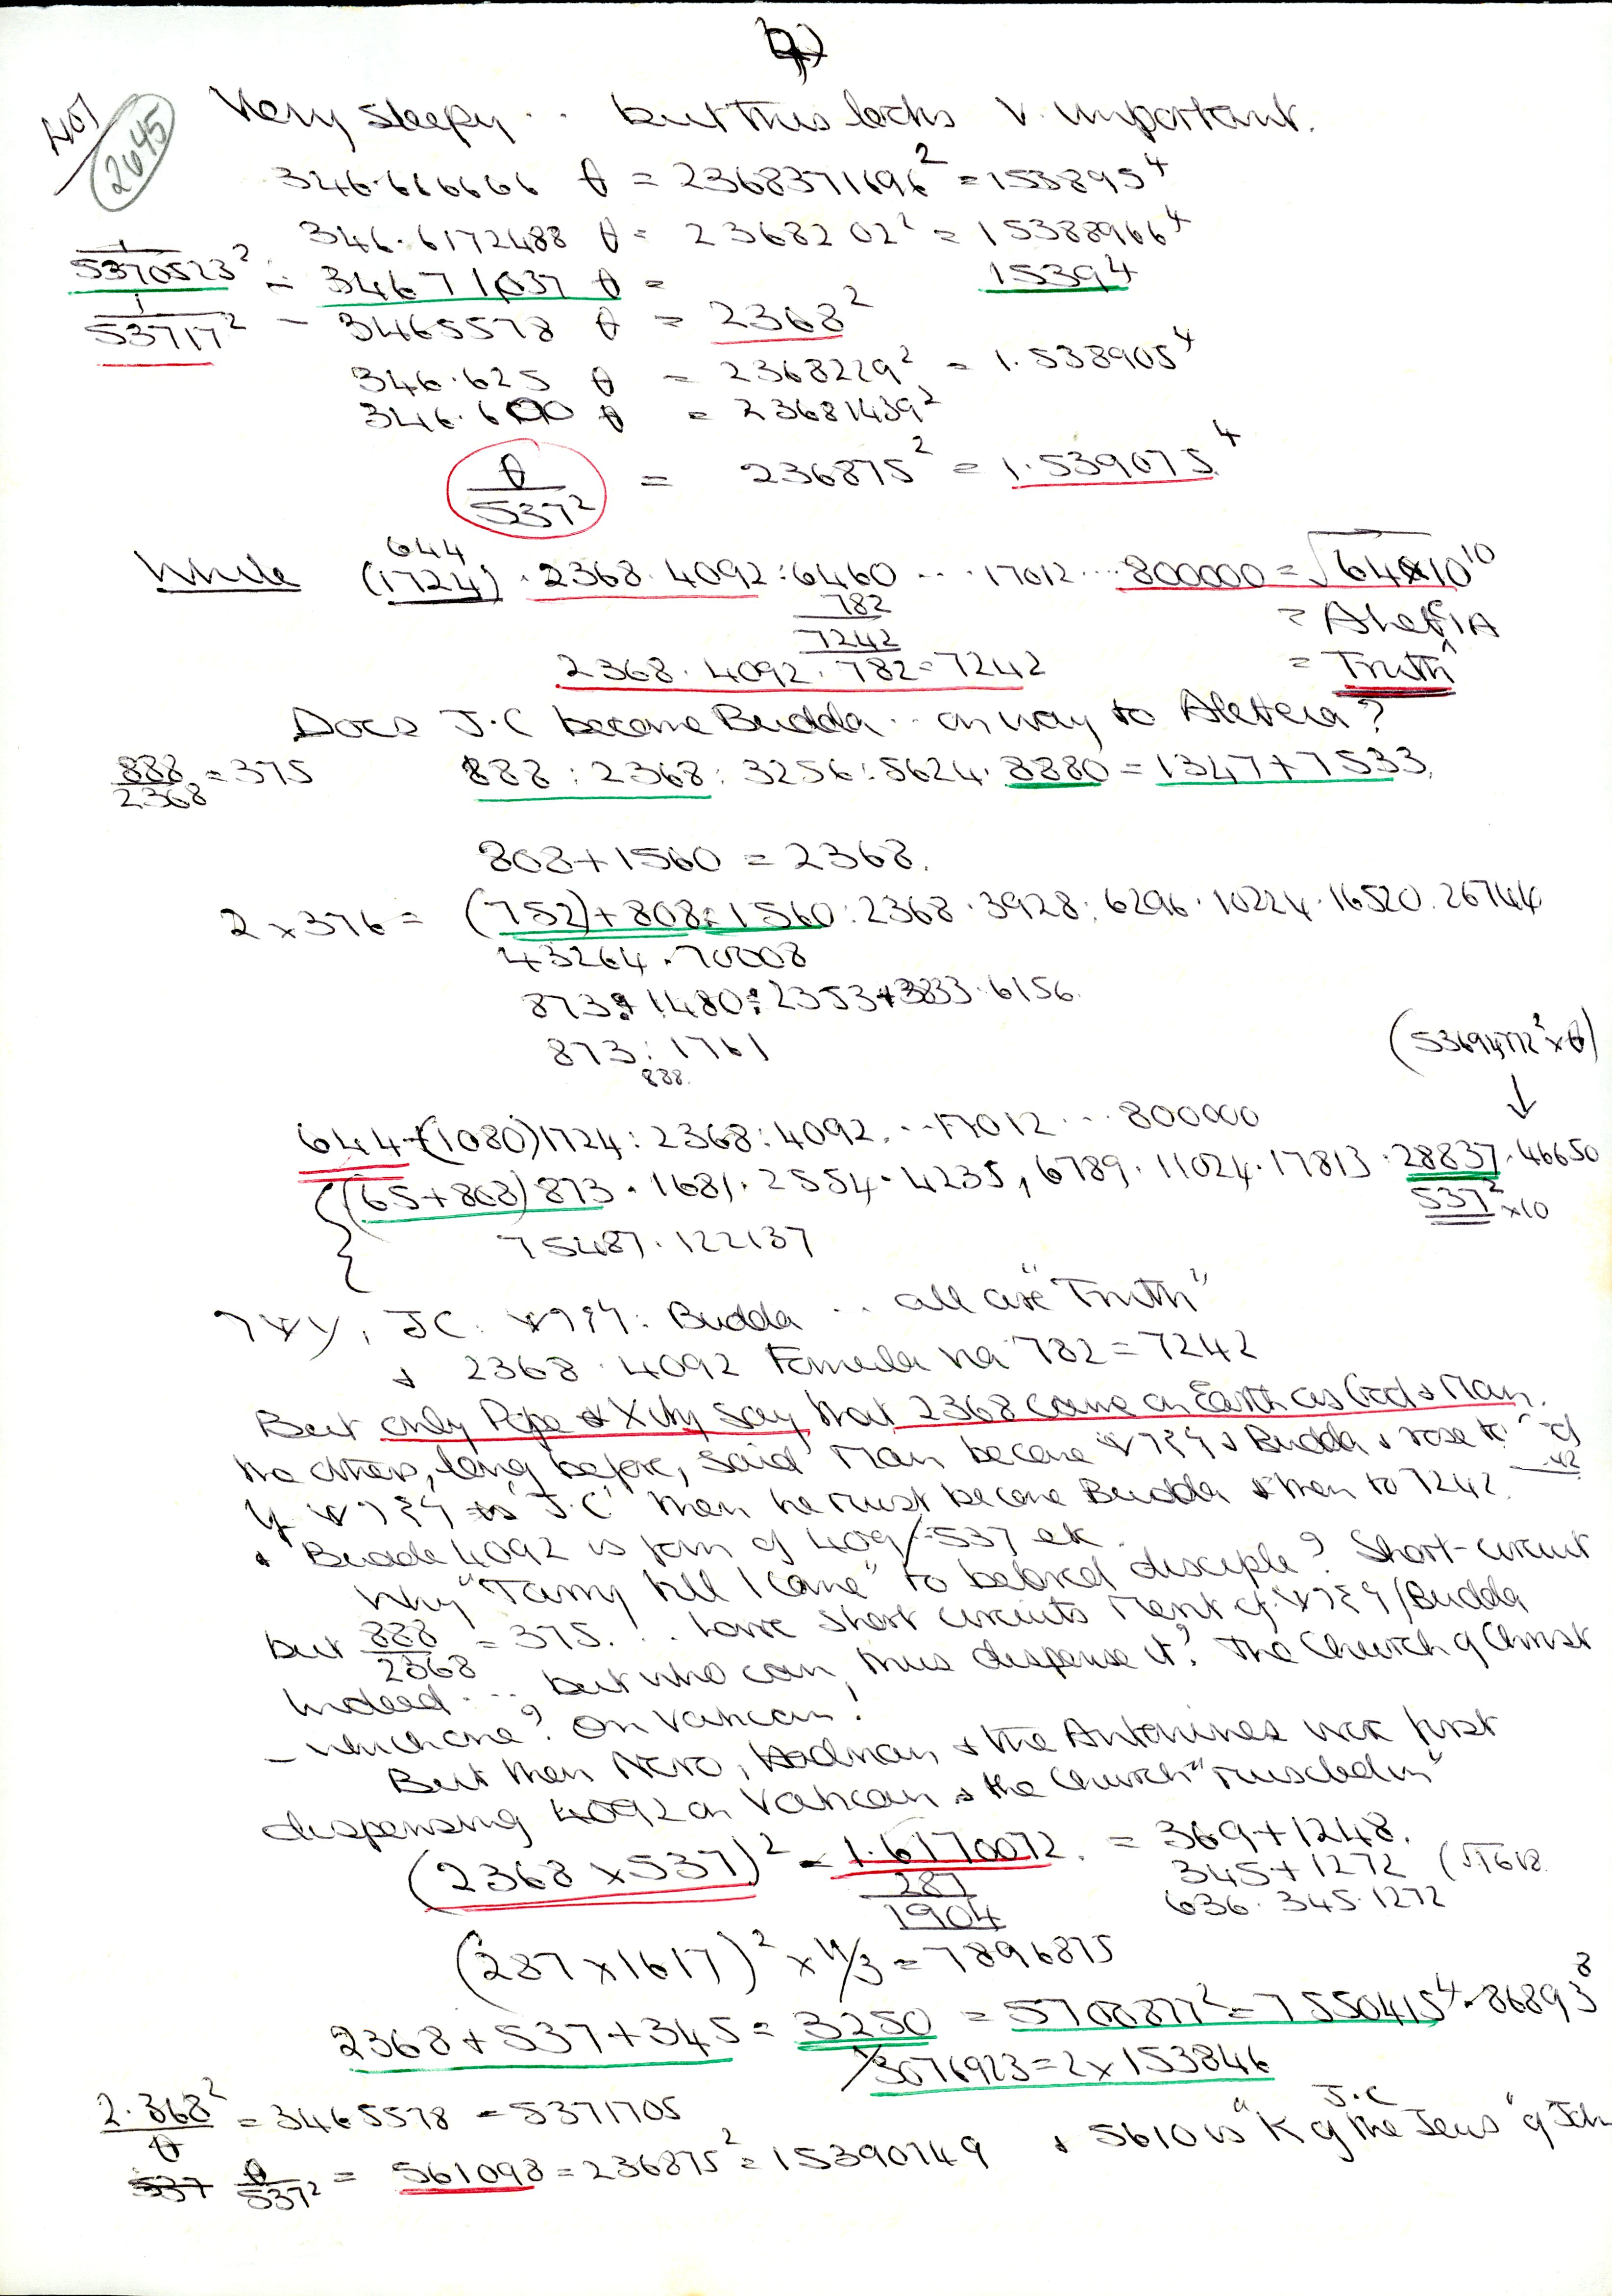 Very sleepy .. but this looks v. important.
2645
346.666666 θ = 2368371696² = 153895⁴
346.6172488 θ = 2368202² = 15388966⁴
1/5370523² = 34671037 θ = 15394
1/53717² = 3465578 θ = 2368²
346.625 θ = 2368229² = 1.538905⁴
346.600 θ = 23681439²
θ/537² = 236875² = 1.539075⁴
644
While (1724) . 2368 . 4092 : 6460 ... 17012 ... 800000 = √64×10¹⁰
782
7242
= Truth
2368 . 4092 . 782 = 7242
Does J.C become Budda .. on way to Aletheia?
888/2368 = 375
888 : 2368 : 3256 : 5624 . 8880 = 1347 + 7533.
808 + 1560 = 2368.
2 × 376 = (752) + 808 : 1560 : 2368 . 3928 : 6296 . 10224 . 16520 . 26744
43264 . 70008
873 + 1480 : 2353 + 3833 . 6156.
873 : 1761
888.
(53694772² × θ)
↓
644 + (1080) 1724 : 2368 : 4092 ... 17012 ... 800000
(65 + 808) 873 . 1681 . 2554 . 4235, 6789 . 11024 . 17813 . 28837 . 46650
537² × 10
75487 . 122137
JC : Budda .. all are "Truth"
+ 2368 . 4092 Formula via 782 = 7242
But only Pope & Xity say that 2368 came on Earth as God & Man.
the others, long before, said Man became & Budda & rose to
If is J.C then he must become Budda & then to 7242.
& Budda 4092 is form of 409/537 etc.
Why "Tarry till I come" to beloved disciple? Short-circuit
but 888/2368 = 375. ! .. short circuits Merit of /Budda
indeed ... but who can, thus dispense it? The Church of Christ
– which one? On Vatican!
But then Nero, Hadrian & the Antonines were first
dispensing 4092 on Vatican & the Church "muscled in"
(2368 × 537)² = 1.6170072. = 369 + 1248.
287
345 + 1272 (√1618
1904
636 . 345 . 1272
(287 × 1617)² × 11/3 = 7896875
2368 + 537 + 345 = 3250 = 5700877² = 7550415⁴ . 86893⁸
1/3076923 = 2 × 153846
2.368²/θ = 3465578 = 5371705
J.C
θ/537² = 561098 = 236875² = 15390749 & 5610 is "K of the Jews" of Joh